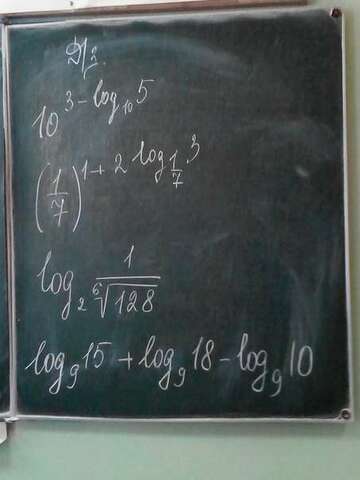 Д/з.
10^{3 - log_{10} 5}
(1/7)^{1 + 2 log_{1/7} 3}
log_2 1/\sqrt[6]{128}
log_9 15 + log_9 18 - log_9 10